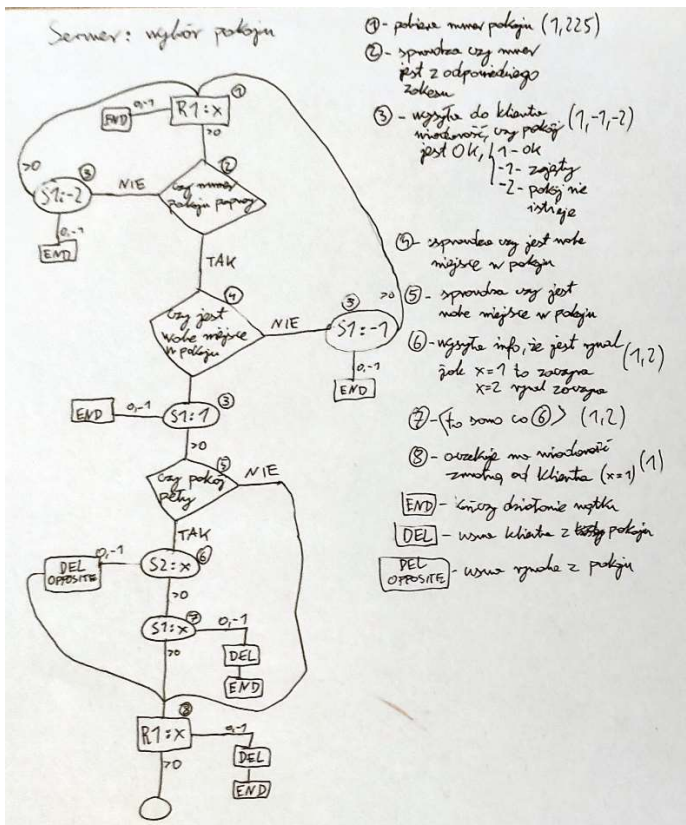 Serwer: wybór pokoju
①
R1:x
0,-1
END
>0
>0
②
czy numer
pokoju popraw
NIE
③
S1:-2
0,-1
END
TAK
④
Czy jest
wolne miejsce
w pokoju
NIE
③
S1:-1
>0
0,-1
END
③
S1:1
0,-1
END
>0
⑤
czy pokój
pełny
NIE
TAK
S2:x ⑥
0,-1
DEL
OPPOSITE
>0
S1:x ⑦
0,-1
DEL
END
>0
⑧
R1:x
0,-1
DEL
END
>0
① - pobiera numer pokoju (1,225)
② - sprawdza czy numer
jest z odpowiedniego
zakresu
③ - wysyła do klienta
wiadomość, czy pokój (1,-1,-2)
jest OK, 1 - ok
-1 - zajęty
-2 - pokój nie
istnieje
④ - sprawdza czy jest wolne
miejsce w pokoju
⑤ - sprawdza czy jest
wolne miejsce w pokoju
⑥ - wysyła info, że jest rywal (1,2)
jak x=1 to zaczyna
x=2 rywal zaczyna
⑦ - <to samo co ⑥> (1,2)
⑧ - oczekuje na wiadomość (1)
zwrotną od klienta (x=1)
END - kończy działanie wątku
DEL - usuwa klienta z pokoju
DEL
OPPOSITE - usuwa rywala z pokoju